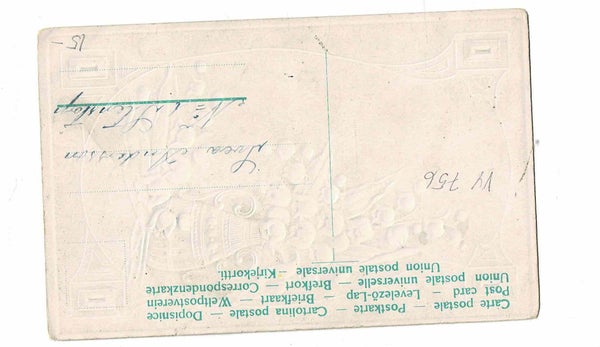 Carte postale — Postkarte — Cartolina postale — Dopisnice
Post card — Levelező-Lap — Briefkaart — Weltpostverein
Union postale universelle — Brefkort — Correspondenzkarte
Union postale universale — Kirjekortti.
VV 756
Svea Andersson
15-